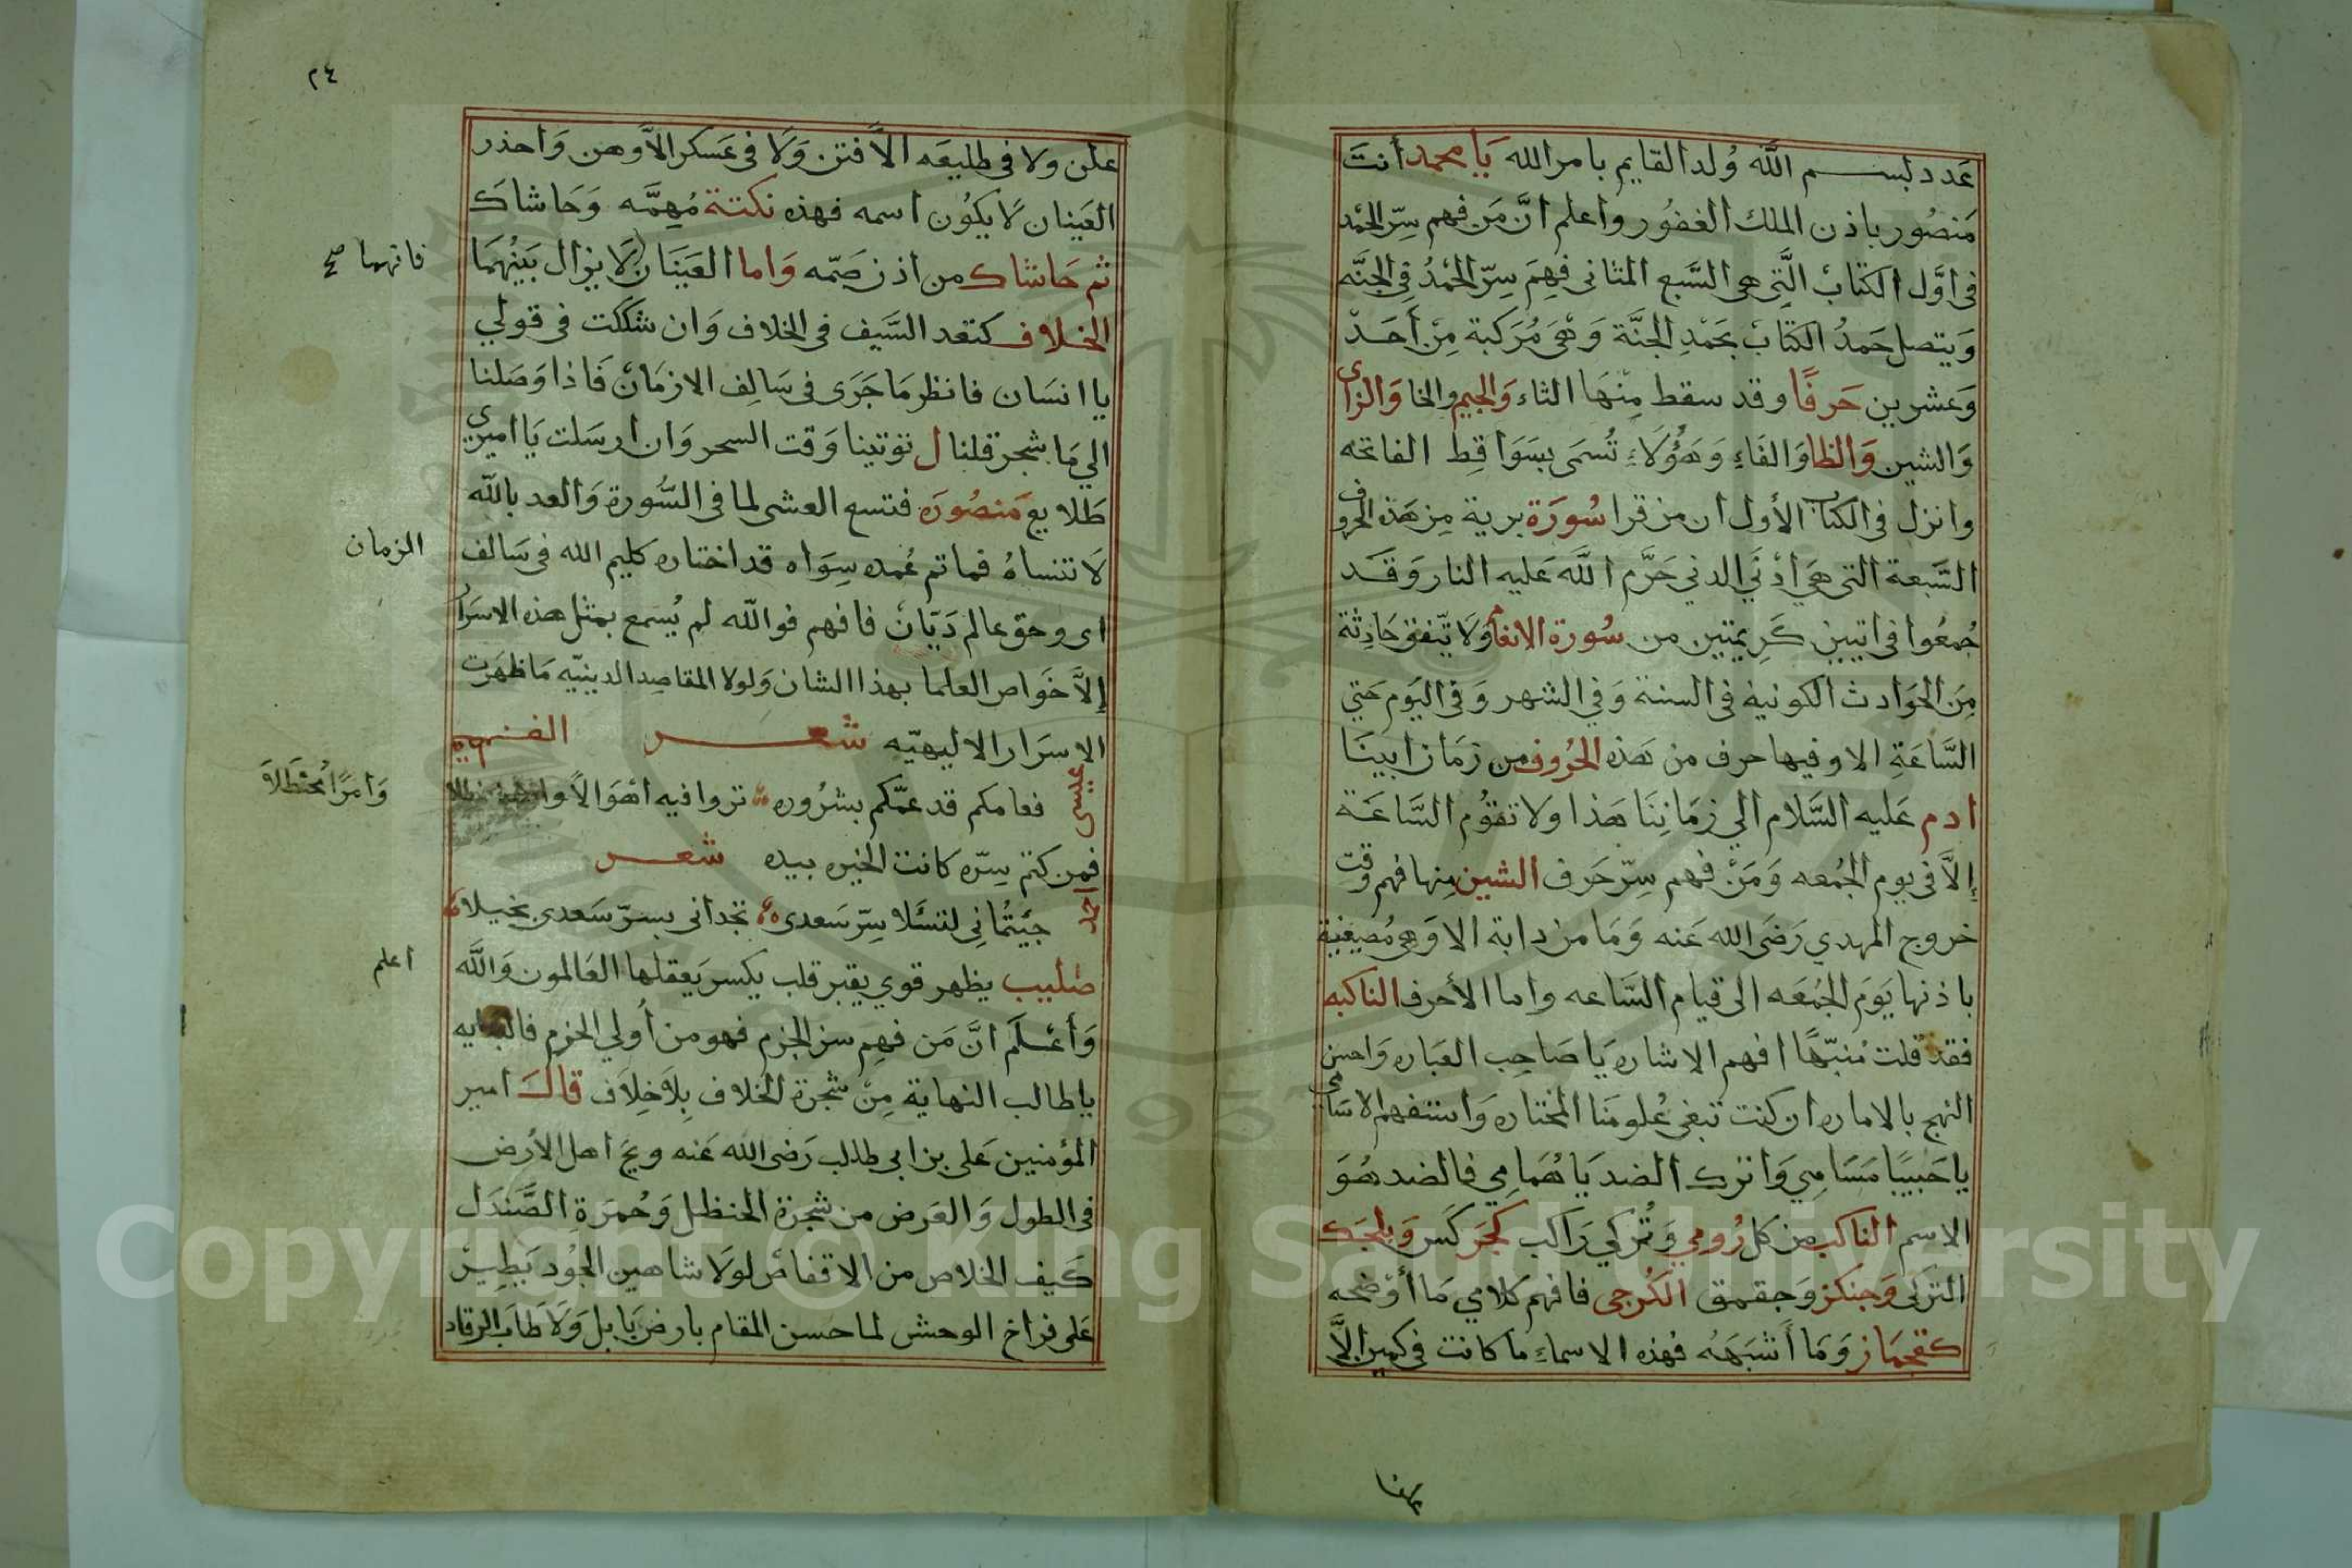 عَدد بســـم اللَّه وُلد القايم بامر الله يَا محمد أنتَ
مَنصُور باذن الملك الغفُور واعلم انَّ مَن فهم سِرّ الحَمْد
فى اوَّل الكتابْ الَّتِى هى السَّبع المثانى فهِمَ سِرّ الحَمْدُ فِى الجنَّه
وَيتصل حَمدُ الكتابْ بحَمْدِ الجنَّة وَهْىَ مُرَكبة مِنْ أَحَدْ
وَعشرين حَرفًا وقد سقط مِنْهَا الثاء وَالجيم والخا وَالزاى
وَالشين وَالظا وَالفَاءِ وَهَؤُلَاءِ تُسَمى بسَوَاقِط الفاتحه
وانزل فى الكتاب الأول ان من قرا سُورَة برية مِن هَذه الحروف
السَّبعة التى هَي أدْنَي الدني حَرَّم اللَّه عَليه النار وَقَد
جُمعُوا فى ايتين كَرِيمتين من سُورة الانعام وَلَا تّتفق حَادِثة
مِنَ الحَوَادث الكونيه فى السنة وَفي الشهر وَفى اليَوم حَتي
السَّاعَةِ الا وفيها حرف من هَذه الحُروف من زمَان ابينَا
ادم عَليه السَّلام الي زمَاننَا هَذا وَلا تقوُم السَّاعَة
إلاَّ فى يوم الجُمعه وَمَنْ فهم سِرّ حَرف الشين مِنها فهم وقت
خروج المهدي رَضَى الله عَنه وَمَا من دابة الا وَهي مُصيغية
باذنها يَوَم الجُمُعَه الى قيام السَّاعه واما الأحرف الناكبه
فقد قلت مُنبّهًا افهم الاشاره يَا صَاحِب العبَاره وَاحسن
النهج بالاماره ان كنت تبغى عُلومَنا المختاره وَاستفهم الاسَامي
يا حَبيبًا مَسَامِي وَاترك الضد يَا هُمَامِي فالضد هُوَ
الاسم الناكب من كل رُومي وَتُركي رَاكب كجَركَس وَبلجَك
التركى وَجنكز وَجقمق الكَرجى فافهم كلامي مَا أَوْضحه
كقجمَاز وَمَا أَشبَهَهُ فهذه الاسماءِ ما كانت فى كمين الاَّ
علن ولا فى طليعَه الاَّ فتن وَلَا فى عَسكر الاَّ وهن وَاحذر
العَينان لَا يكوُن اسمه فهذه نكتة مُهِمَّه وَحَاشاكَ
ثم حَاشاك من اذن صَمّه وَاما العَينَان لَا يزال بَينُهمَا
فانهما صح
الخلاف كتعد السَّيف فى الخلاف وَان شككت فى قولي
يا انسَان فانظر مَا جَرَى فى سَالِف الازمَانْ فَاذا وَصَلنا
الي مَا شجر قلنا ل توتينا وَقت السحر وَان ارسَلت يَا اميري
طَلايع مَنصُورَه فتسع العشى لما فى السُّورة وَالعد باللّه
لَا تنسَاهُ فما تم عُمده سِوَاه قد اختاره كليم الله فى سَالف
الزمان
اى وحق عالم دَيّانْ فافهم فوالله لم يُسمع بمثل هذه الاسرَار
إلاَّ خَواص العلما بهذا الشان وَلولا المقاصِد الدينيّه مَا ظهَرت
الاسرَار الالهيّه شعـــر
عيسى فعامكم قد عمّكم بشرُوره تروا فيه اهْوَالاً
وَامرًا مُحنْظَلاَ
فمن كتم سِرّه كانت الخيره بيده شعـــر
جئيتُمانى لتسئَلا سِرّ سَعدى تجدانى بسرّ سَعدى بخيلا
صليب يظهر قوي يقبر قلب يكسر يَعقلها العَالمون وَاللَّه
اعلم
وَأَعْلَم انَّ مَن فهِم سر الجزم فهو من أُولي الحزم فالغايه
يا طالب النهاية مِنْ شجرة الخلاف بِلاَ خِلَاف قالَ امير
المؤمنين عَلى بن ابى طالب رَضى الله عَنه ويح اهل الأرض
فى الطول وَالعَرض من شجرة الحنظل وَحُمرَةِ الصَّندَل
كَيف الخلاص من الاقفاص لولَا شاهين الجُود يَطِيرْ
عَلى فراخ الوحش لما حسن المقام بارض بَابل وَلَا طاب الرقاد